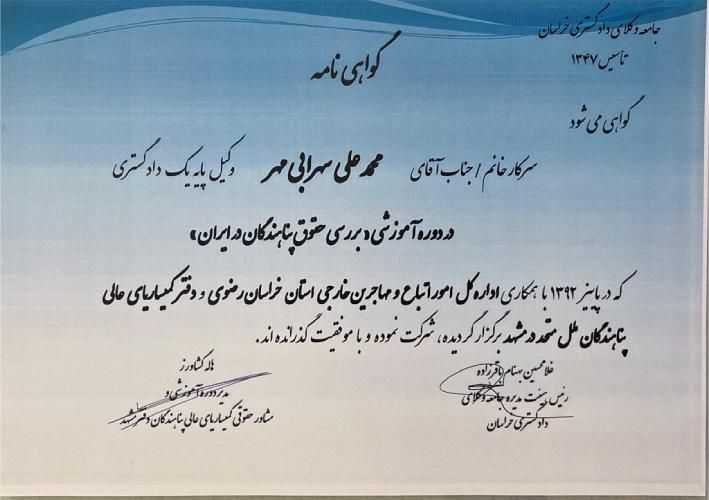 جامعه وکلای دادگستری خراسان
تأسیس ۱۳۴۷
گواهی نامه
گواهی می شود
سرکار خانم / جناب آقای محمد علی سهرابی مهر وکیل پایه یک دادگستری
در دوره آموزشی «بررسی حقوق پناهندگان در ایران»
که در پاییز ۱۳۹۲ با همکاری اداره کل امور اتباع و مهاجرین خارجی استان خراسان رضوی و دفتر کمیساریای عالی
پناهندگان ملل متحد در مشهد برگزار گردیده، شرکت نموده و با موفقیت گذرانده اند.
غلامحسین بهنام باقرزاده
رئیس هیئت مدیره جامعه وکلای
دادگستری خراسان
هاله کشاورز
مدیر دوره آموزشی و
مشاور حقوقی کمیساریای عالی پناهندگان دفتر مشهد